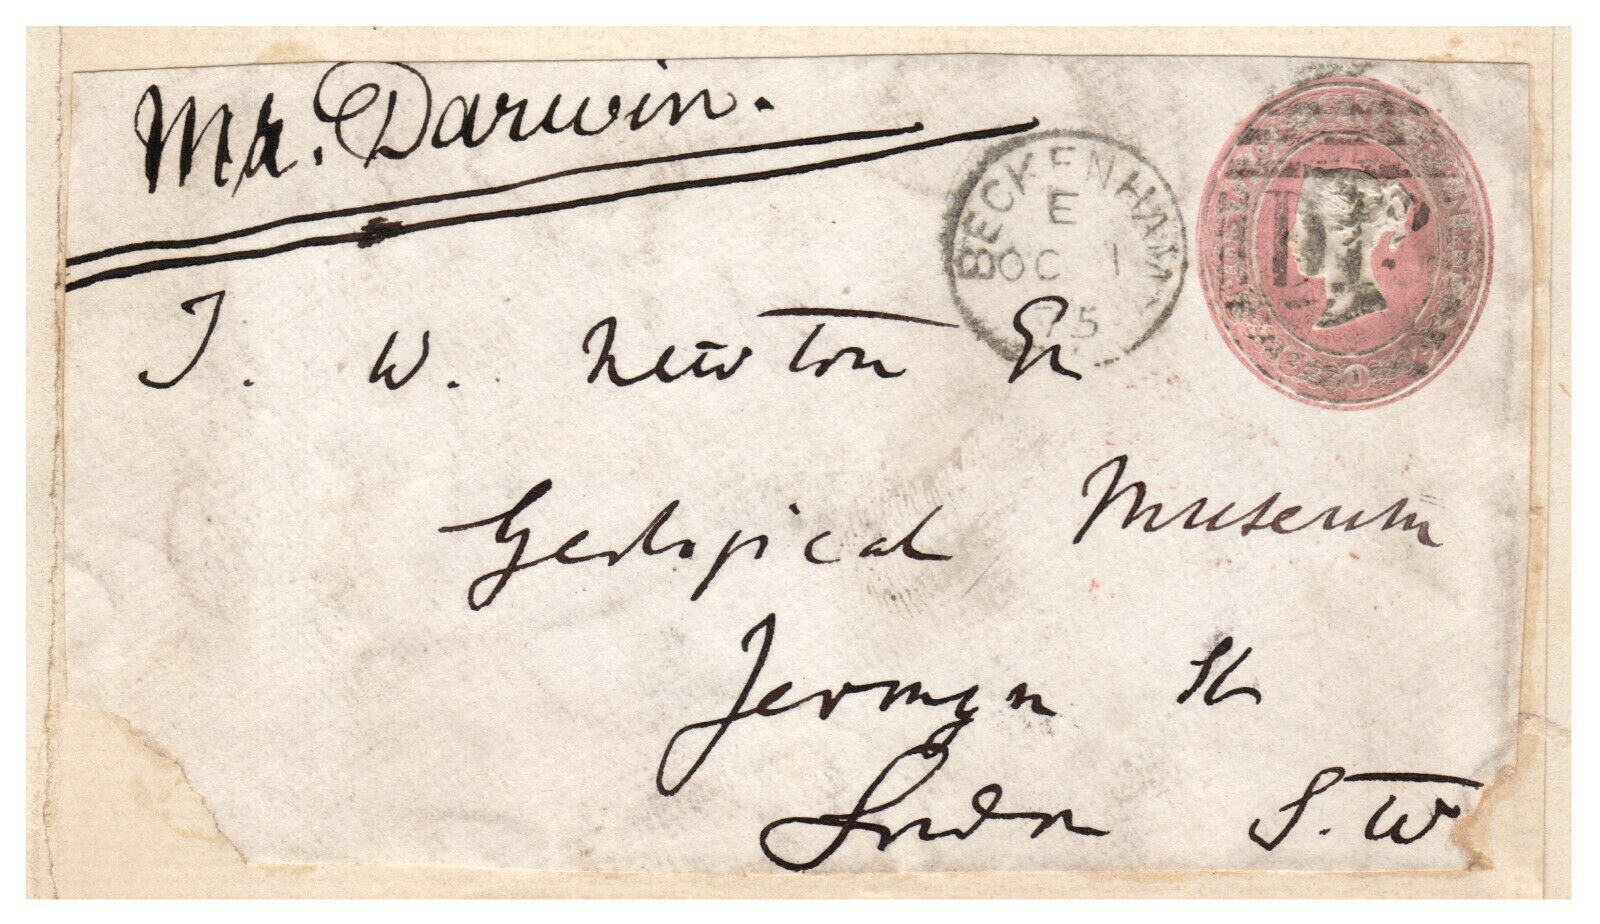 Mr. Darwin.
BECKENHAM
E
OC 1
75
T. W. Newton Esq
Geological Museum
Jermyn St
London S.W